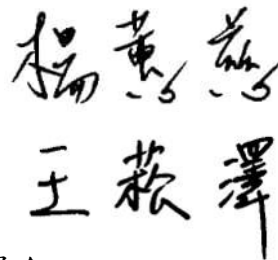 楊蕙慈
王菘澤